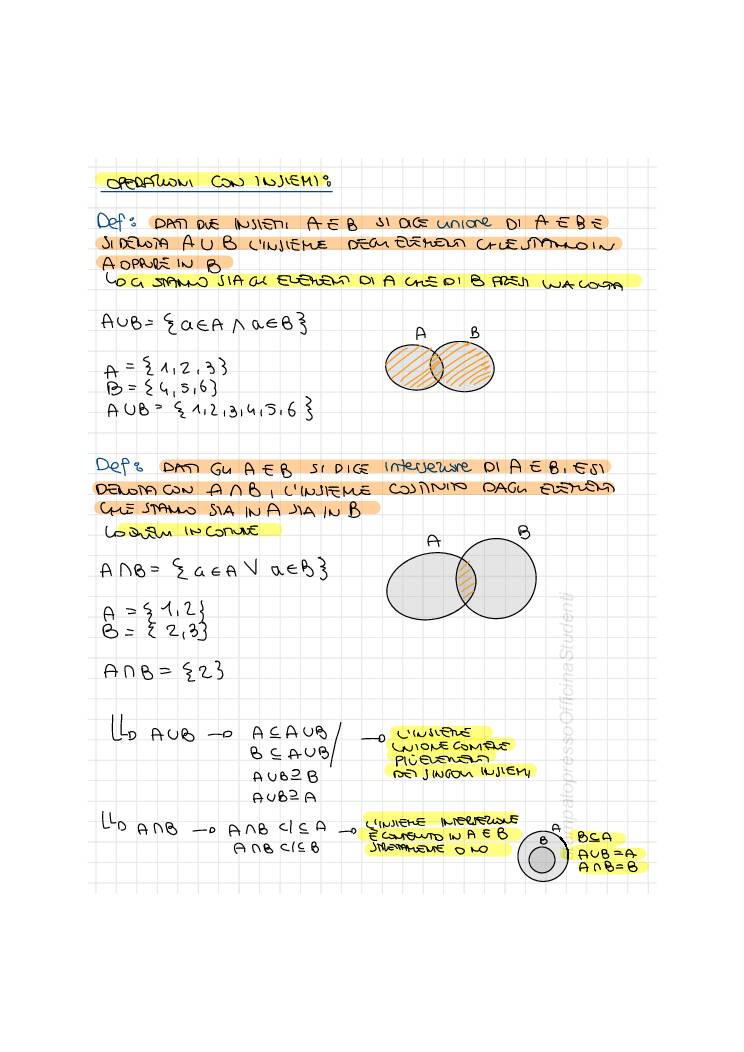 OPERAZIONI CON INSIEMI:
Def: DATI DUE INSIEMI A E B SI DICE unione DI A E B E
SI DENOTA A ∪ B L'INSIEME DEGLI ELEMENTI CHE STANNO IN
A OPPURE IN B
CI STANNO SIA GLI ELEMENTI DI A CHE DI B PRESI UNA VOLTA
A∪B = {a∈A ∧ a∈B}
A B
A = {1,2,3}
B = {4,5,6}
A∪B = {1,2,3,4,5,6}
Def: DATI GLI A E B SI DICE intersezione DI A E B, E SI
DENOTA CON A ∩ B, L'INSIEME COSTITUITO DAGLI ELEMENTI
CHE STANNO SIA IN A SIA IN B
IN COMUNE
A B
A∩B = {a∈A ∨ a∈B}
A = {1,2}
B = {2,3}
A∩B = {2}
A∪B → A⊆A∪B
B⊆A∪B
A∪B⊇B
A∪B⊇A
→ L'INSIEME
UNIONE CONTIENE
PIÙ ELEMENTI
DEI SINGOLI INSIEMI
A∩B → A∩B ⊂/⊆ A
A∩B ⊂/⊆ B
→ L'INSIEME INTERSEZIONE
È CONTENUTO IN A E B
STRETTAMENTE O NO
A
B
B⊆A
A∪B=A
A∩B=B
mpatopressoOfficinaStudenti